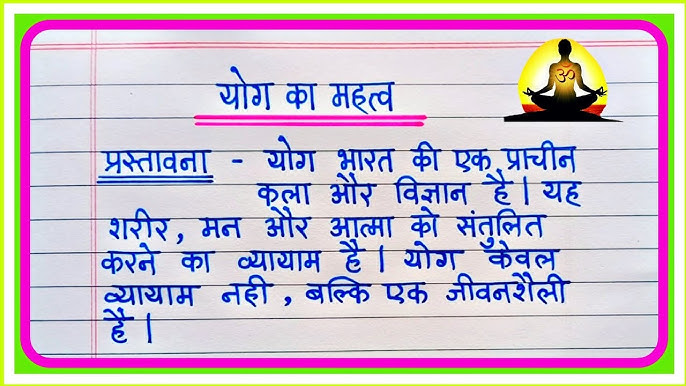 योग का महत्व
प्रस्तावना - योग भारत की एक प्राचीन
कला और विज्ञान है। यह
शरीर, मन और आत्मा को संतुलित
करने का व्यायाम है। योग केवल
व्यायाम नही, बल्कि एक जीवनशैली
है।
ॐ